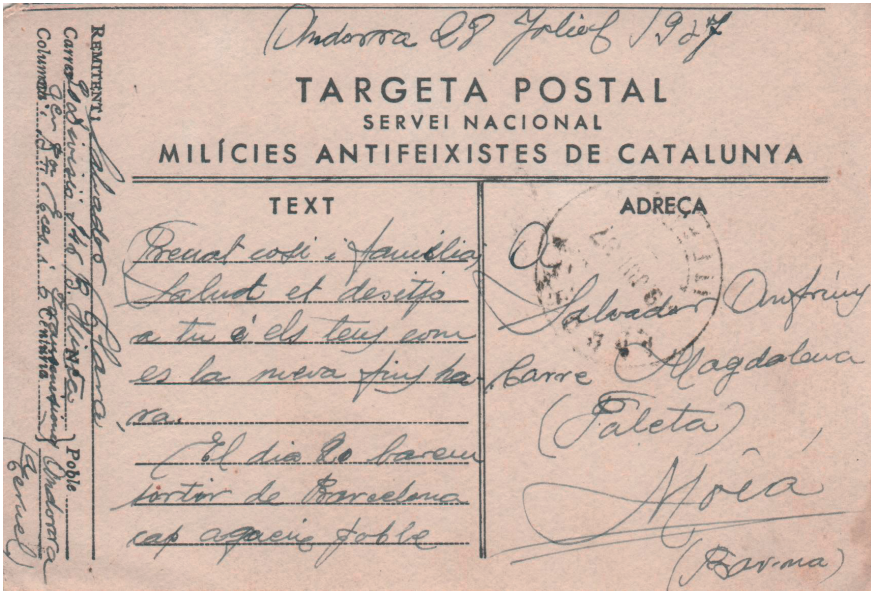 Andorra 28 Joliol 1937
TARGETA POSTAL
SERVEI NACIONAL
MILÍCIES ANTIFEIXISTES DE CATALUNYA
REMITENT: Salvador Plara
Carrer Nº
Columna Centúria
Poble Andorra
(Teruel)
TEXT
Breuat cosi i familia,
Salut et desitjo
a tu é els teus com
es la meva fins ha-
ra.
El dia 20 barem
sortir de Barcelona
cap aqueix poble
ADREÇA
A
Salvador Onfriny
Carre Magdalena
(Faleta)
Moiá
(Bar-na)